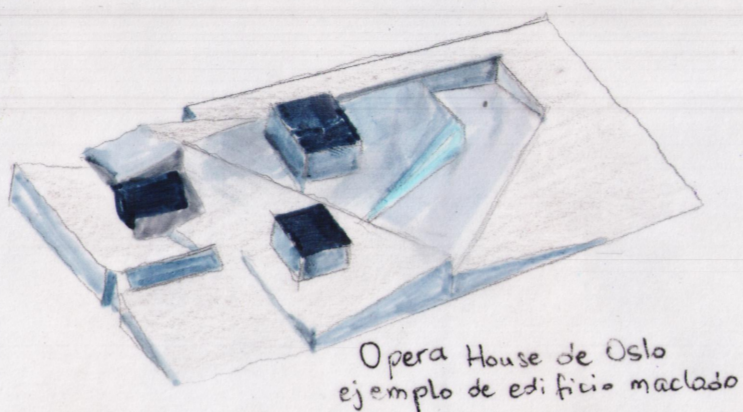 Opera House de Oslo
ejemplo de edificio maclado